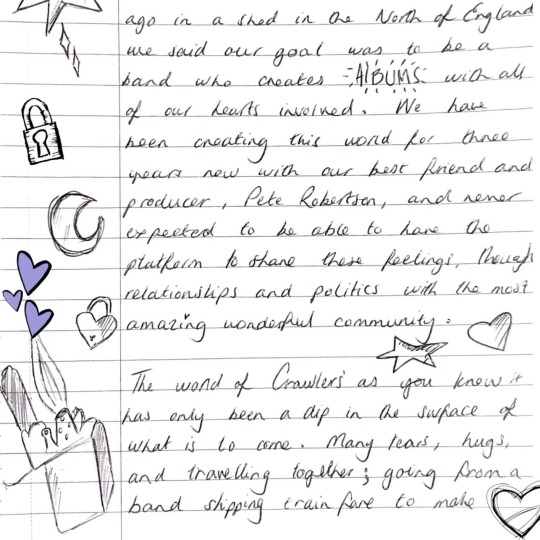 ago in a shed in the North of England
we said our goal was to be a
band who creates ALBUMS with all
of our hearts involved. We have
been creating this world for three
years now with our best friend and
producer, Pete Robertson, and never
expected to be able to have the
platform to share these feelings, though
relationships and politics with the most
amazing wonderful community.
The world of Crawlers' as you know it
has only been a dip in the surface of
what is to come. Many tears, hugs,
and travelling together; going from a
band shipping train fare to make